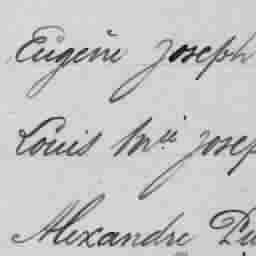 Eugène Joseph
Louis Mie Josep
Alexandre Du